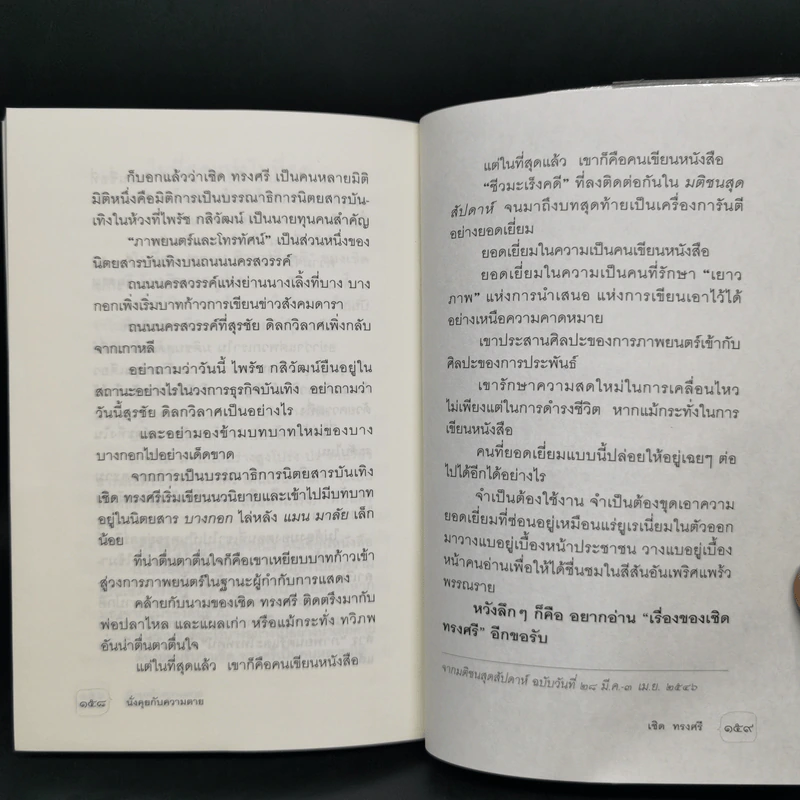 ก็บอกแล้วว่าเชิด ทรงศรี เป็นคนหลายมิติ
มิติหนึ่งคือมิติการเป็นบรรณาธิการนิตยสารบัน-
เทิงในห้วงที่ไพรัช กสิวัฒน์ เป็นนายทุนคนสำคัญ
“ภาพยนตร์และโทรทัศน์” เป็นส่วนหนึ่งของ
นิตยสารบันเทิงบนถนนนครสวรรค์
ถนนนครสวรรค์แห่งย่านนางเลิ้งที่บาง บาง
กอกเพิ่งเริ่มบาทก้าวการเขียนข่าวสังคมดารา
ถนนนครสวรรค์ที่สุรชัย ดิลกวิลาศเพิ่งกลับ
จากเกาหลี
อย่าถามว่าวันนี้ ไพรัช กสิวัฒน์ยืนอยู่ใน
สถานะอย่างไรในวงการธุรกิจบันเทิง อย่าถามว่า
วันนี้สุรชัย ดิลกวิลาศเป็นอย่างไร
และอย่ามองข้ามบทบาทใหม่ของบาง
บางกอกไปอย่างเด็ดขาด
จากการเป็นบรรณาธิการนิตยสารบันเทิง
เชิด ทรงศรีเริ่มเขียนนวนิยายและเข้าไปมีบทบาท
อยู่ในนิตยสาร บางกอก ไล่หลัง แมน มาลัย เล็ก
น้อย
ที่น่าตื่นตาตื่นใจก็คือเขาเหยียบบาทก้าวเข้า
สู่วงการภาพยนตร์ในฐานะผู้กำกับการแสดง
คล้ายกับนามของเชิด ทรงศรี ติดตรึงมากับ
พ่อปลาไหล และแผลเก่า หรือแม้กระทั่ง ทวิภพ
อันน่าตื่นตาตื่นใจ
แต่ในที่สุดแล้ว เขาก็คือคนเขียนหนังสือ
๑๕๘ นั่งคุยกับความตาย
แต่ในที่สุดแล้ว เขาก็คือคนเขียนหนังสือ
“ชีวมะเร็งคดี” ที่ลงติดต่อกันใน มติชนสุด
สัปดาห์ จนมาถึงบทสุดท้ายเป็นเครื่องการันตี
อย่างยอดเยี่ยม
ยอดเยี่ยมในความเป็นคนเขียนหนังสือ
ยอดเยี่ยมในความเป็นคนที่รักษา “เยาว
ภาพ” แห่งการนำเสนอ แห่งการเขียนเอาไว้ได้
อย่างเหนือความคาดหมาย
เขาประสานศิลปะของการภาพยนตร์เข้ากับ
ศิลปะของการประพันธ์
เขารักษาความสดใหม่ในการเคลื่อนไหว
ไม่เพียงแต่ในการดำรงชีวิต หากแม้กระทั่งในการ
เขียนหนังสือ
คนที่ยอดเยี่ยมแบบนี้ปล่อยให้อยู่เฉยๆ ต่อ
ไปได้อีกได้อย่างไร
จำเป็นต้องใช้งาน จำเป็นต้องขุดเอาความ
ยอดเยี่ยมที่ซ่อนอยู่เหมือนแร่ยูเรเนี่ยมในตัวออก
มาวางแบอยู่เบื้องหน้าประชาชน วางแบอยู่เบื้อง
หน้าคนอ่านเพื่อให้ได้ชื่นชมในสีสันอันเพริศแพร้ว
พรรณราย
หวังลึกๆ ก็คือ อยากอ่าน “เรื่องของเชิด
ทรงศรี” อีกขอรับ
จากมติชนสุดสัปดาห์ ฉบับวันที่ ๒๘ มี.ค.-๓ เม.ย. ๒๕๔๖
เชิด ทรงศรี ๑๕๙